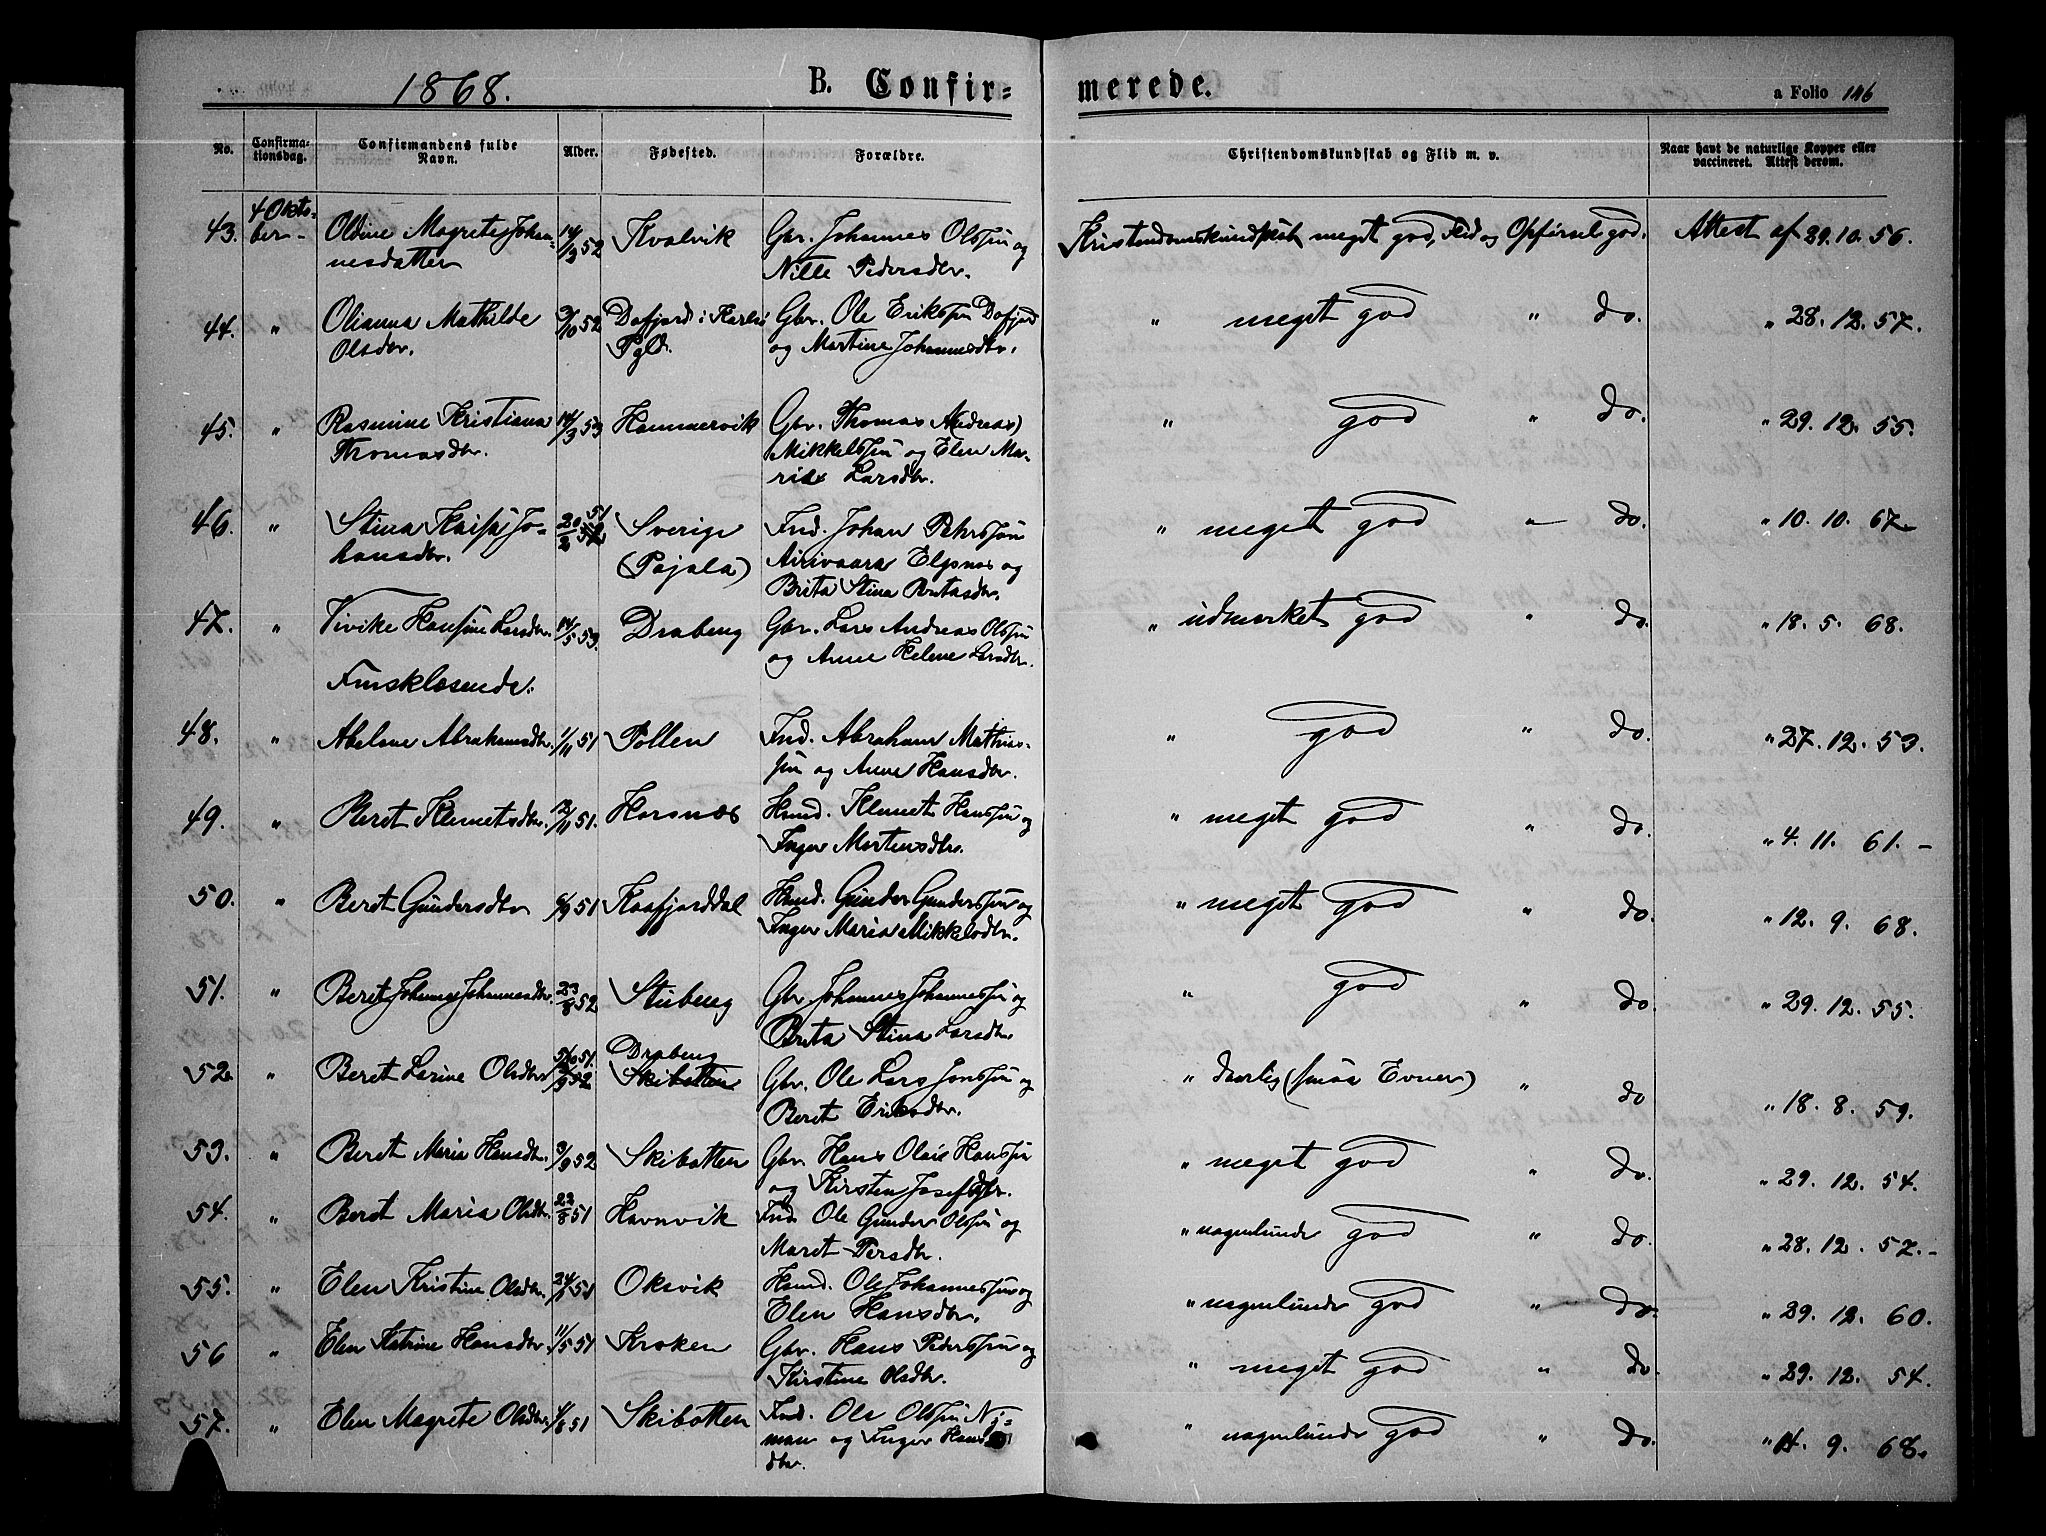 1868.
B. Confir=
merede.
a Folio 146
No.
Confirma-
tionsdag.
Confirmandens fulde
Navn.
Alder.
Fødested.
Forældre.
Christendomskundskab og Flid m. v.
Naar havt de naturlige Kopper eller
vaccineret. Attest derom.
43. 4 Okto-
ber- Oldine Magrete Johan-
nesdatter 14/3 52 Kvalvik Gbr. Johannes Olssøn og
Nille Pedersdtr. Kristendomskundskab meget god, Flid og Opførsel god. Attest af 29.10.56.
44. " Olianna Mathilde
Olsdtr. 2/10 52 Dafjord i Karlsø
Pgld. Gbr. Ole Erikssøn Dafjord
og Martine Johannesdtr. " meget god " do. " 28.12.57.
45. " Rasmine Kristiana
Thomasdtr. 14/3 53 Hammervik Gbr. Thomas (Andreas)
Mikkelssøn og Elen Ma-
ria Larsdtr. " god " do. " 29.12.55.
46. " Stina Kaisa Jo-
hansdtr. 20/2 51 Sverige
(Pajala) Ind. Johan Petersøn
Airivaara Elgsnes og
Brita Stina " meget god " do. " 10.10.67
47. " Vivike Hansine Larsdtr. 14/5 53. Drabeng Gbr. Lars Andreas Olssøn
og Anne Helene Larsdtr. " udmærket god " do. " 18.5.68.
Finsklæsende:
48. " Abelone Abrahamsdtr. 1/11 51 Pollen Ind. Abraham Mathias-
søn og Anne Hansdtr. " god " do. " 27.12.53.
49. " Beret Klemetsdtr. 2/11 51. Horsnæs Hmd. Klemet Hanssøn og
Inger Martensdtr. " meget god " do. " 4.11.61. -
50. " Beret Gundersdtr 6/9 51 Kaafjorddal Hmd. Gunder Gunderssøn og
Inger Maria Mikkelsdtr. " meget god " do. " 12.9.68.
51. " Beret Johanne Johannesdtr. 23/8 52 Stubeng Gbr Johannes Johannessøn og
Brita Stina Larsdtr. " god " do. " 29.12.55.
52. " Beret Larine Olsdtr 51 Drabeng
Skibotten Gbr. Ole Lars Jonssøn og
Beret Eriksdtr. " daarlig (smaa Evner) " do " 18.8.59.
53. " Beret Maria Hansdtr. 3/9 52 Skibotten Gbr. Hans Olaie Hanssøn
og Kirsten Josefsdtr. " meget god " do. " 29.12.54.
54. " Beret Maria Olsdtr. 22/8 51 Havnvik Ind. Ole Gunder Olssøn og
Maret Persdtr. " nogenlunde god " do. " 28.12.57. -
55. " Elen Kristine Olsdtr. 24/6 51 Oksvik Hmd. Ole Johannessøn og
Elen Hansdtr. " nogenlunde god " do. " 29.12.60.
56 " Elen Katrine Hansdtr. 11/5 51 Kroken Gbr. Hans Pederssøn og
Kirstine Olsdtr. " meget god " do. " 29.12.54.
57. " Elen Magrete Olsdtr. 4/8 51 Skibotten Ind. Ole Olssøn Nj-
man og Inger Hans
dtr. " nogenlunde god " do. " 14.9.68.